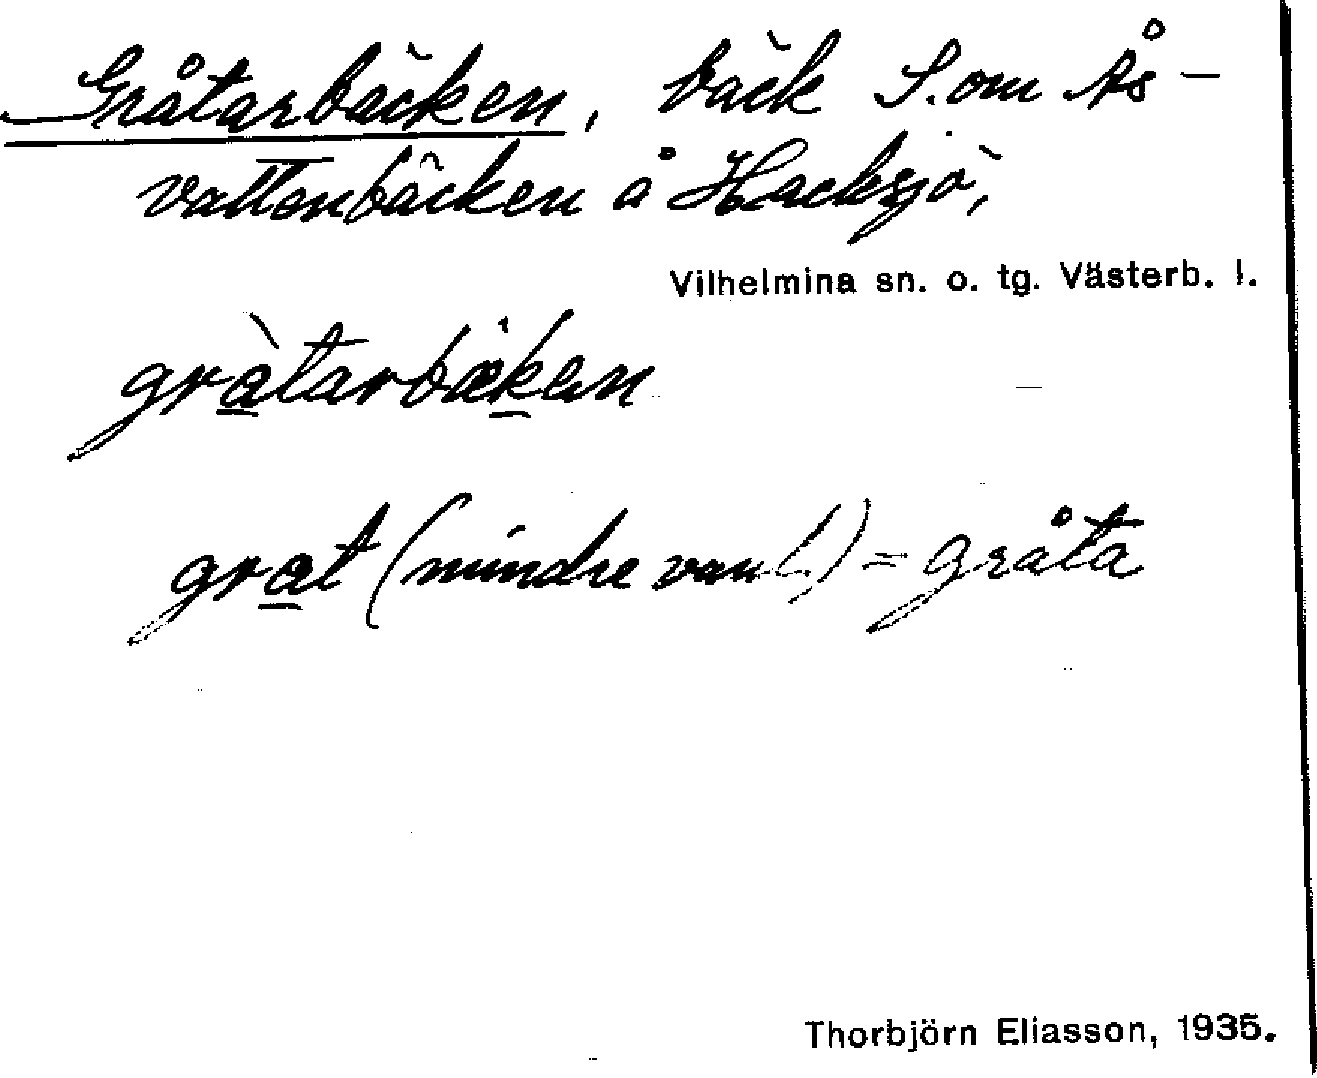 Gråtarbäcken, bäck S. om Ås-
vattenbäcken å Hacksjö,
Vilhelmina sn. o. tg. Västerb. l.
gràtarbækan
grat (mindre vanl.) = gråta
Thorbjörn Eliasson, 1935.